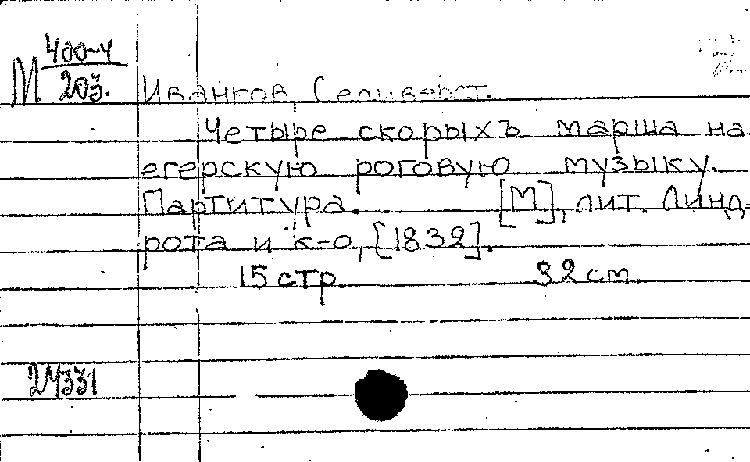 М 400-4
203.
Иванов, Селиверст.
Четыре скорыхъ марша на
егерскую роговую музыку.
Партитура. [М], лит. Линд-
рота и к-о, [1832].
15 стр. 32 см
24331